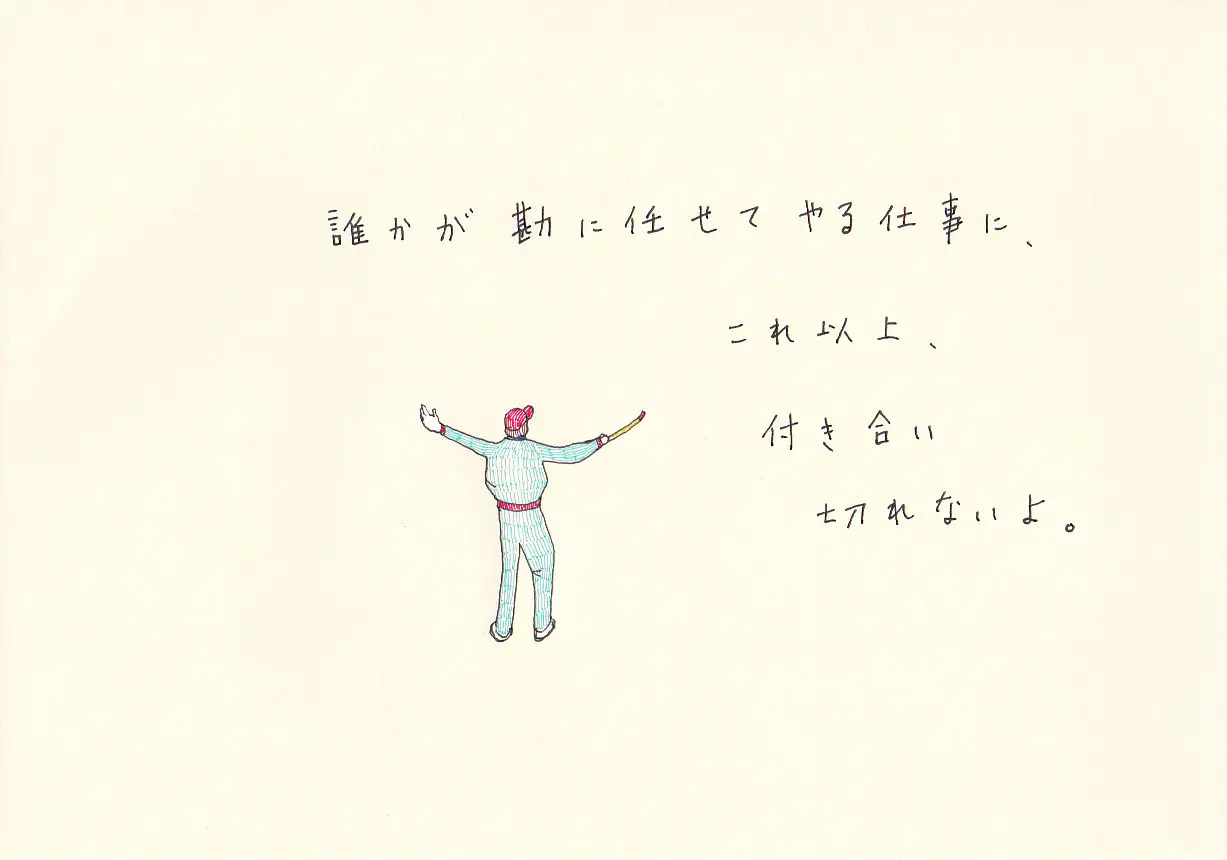 誰かが勘に任せてやる仕事に、
これ以上、
付き合い
切れないよ。